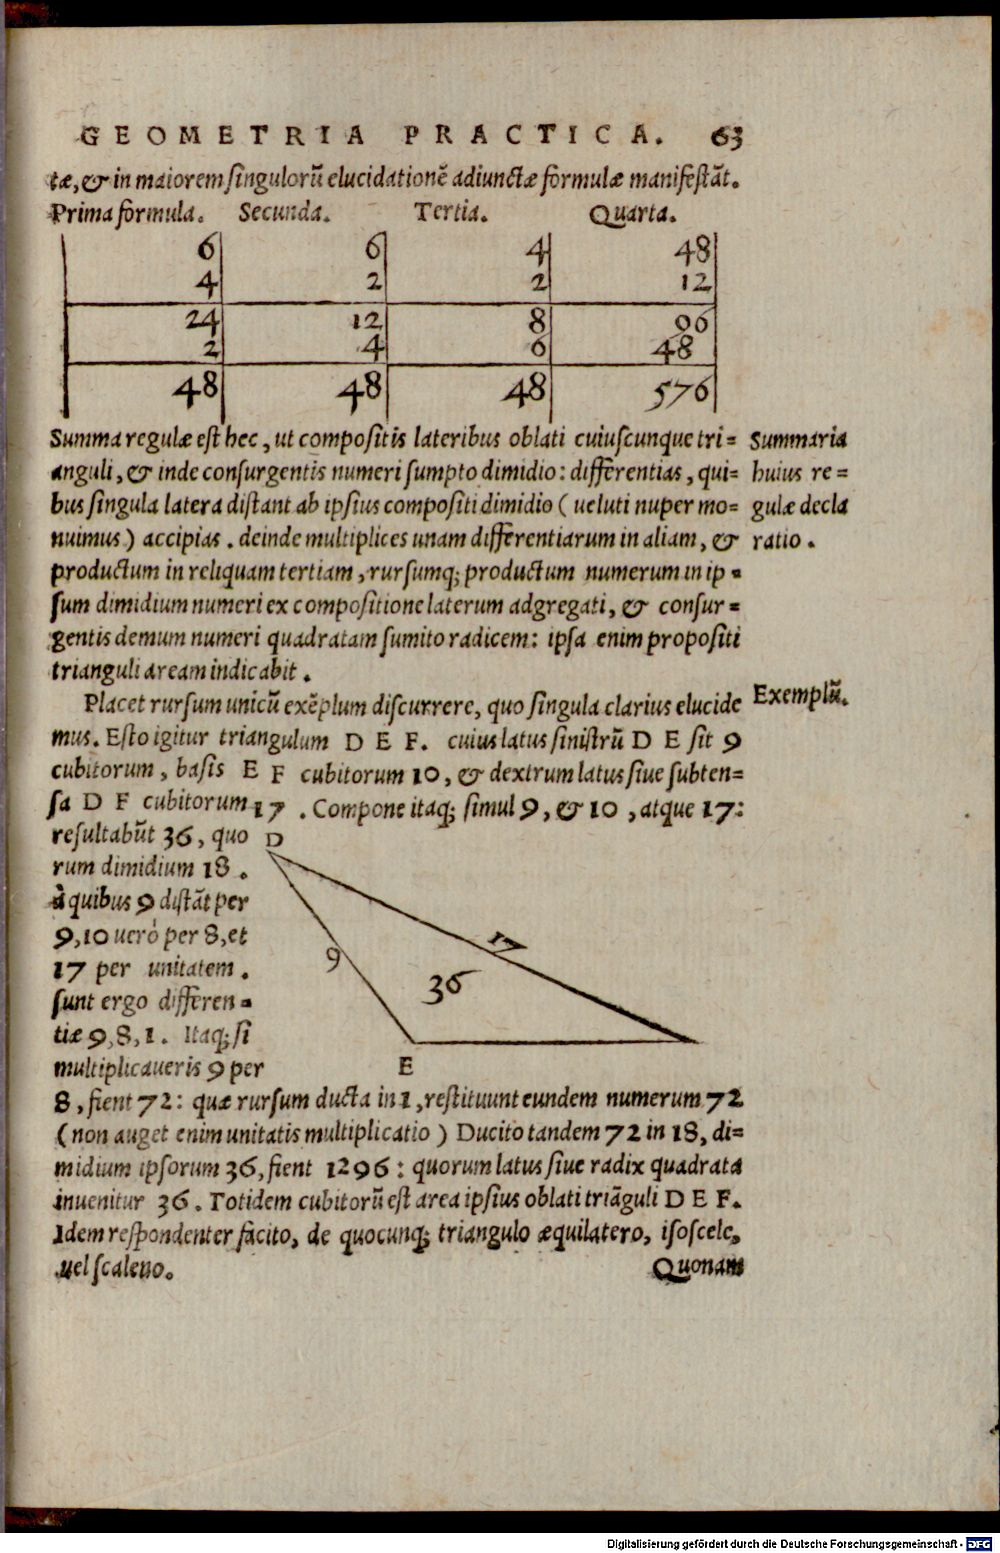 GEOMETRIA PRACTICA. 63
tæ, & in maiorem singulorū elucidationē adiunctæ formulæ manifestāt.
Prima formula. Secunda. Tertia. Quarta.
6 6 4 48
4 2 2 12
24 12 8 96
2 4 6 48
48 48 48 576
Summa regulæ est hec, ut compositis lateribus oblati cuiuscunque tri=
anguli, & inde consurgentis numeri sumpto dimidio: differentias, qui=
bus singula latera distant ab ipsius compositi dimidio (ueluti nuper mo=
nuimus) accipias. deinde multiplices unam differentiarum in aliam, &
productum in reliquam tertiam, rursumq; productum numerum in ip=
sum dimidium numeri ex compositione laterum adgregati, & consur=
gentis demum numeri quadratam sumito radicem: ipsa enim propositi
trianguli aream indicabit.
Summaria
huius re=
gulæ decla
ratio.
Placet rursum unicū exēplum discurrere, quo singula clarius elucide
mus. Esto igitur triangulum D E F. cuius latus sinistrū D E sit 9
cubitorum, basis E F cubitorum 10, & dextrum latus siue subten=
sa D F cubitorum 17. Compone itaq; simul 9, & 10, atque 17:
Exemplū.
resultabūt 36, quo
rum dimidium 18.
à quibus 9 distāt per
9, 10 uerò per 8, et
17 per unitatem.
sunt ergo differen=
tiæ 9, 8, 1. Itaq; si
multiplicaueris 9 per
D
17
9
36
E
8, fient 72: quæ rursum ducta in 1, restituunt eundem numerum 72
(non auget enim unitatis multiplicatio) Ducito tandem 72 in 18, di=
midium ipsorum 36, fient 1296: quorum latus siue radix quadrata
inuenitur 36. Totidem cubitorū est area ipsius oblati triāguli D E F.
Idem respondenter facito, de quocunq; triangulo æquilatero, isoscele,
uel scaleno.
Quonam
Digitalisierung gefördert durch die Deutsche Forschungsgemeinschaft - DFG